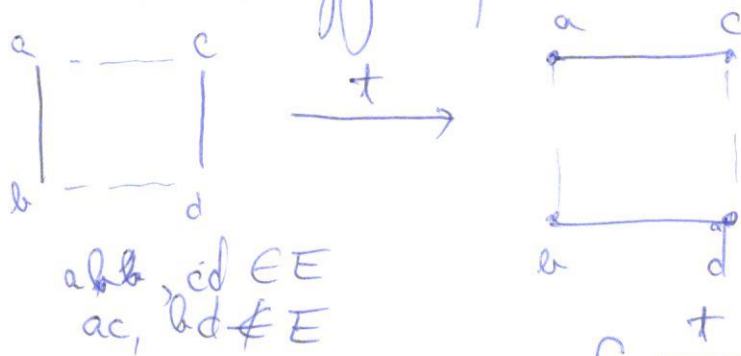 a c
t
a c
b d
b d
ab, cd ∈ E
ac, bd ∉ E
t